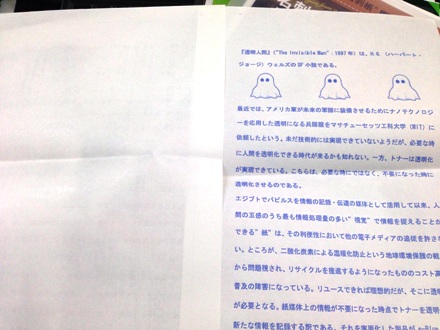 『透明人間』("The Invisible Man" 1897年)は、H.G.(ハーバート・
ジョージ)ウェルズのSF小説である。
最近では、アメリカ軍が未来の軍隊に装備させるためにナノテクノロジ
ーを応用した透明になる兵隊服をマサチューセッツ工科大学(MIT)に
依頼したという。未だ技術的には実現できていないようだが、必要な時
に人間を透明化できる時代が来るかも知れない。一方、トナーは透明化
が実現できている。こちらは、必要な時にではなく、不要になった時に
透明化させるのである。
エジプトでパピルスを情報の記録・伝達の媒体として活用して以来、人
間の五感のうち最も情報処理量の多い"視覚"で情報を捉えることが
できる"紙"は、その利便性において他の電子メディアの追従を許さな
い。ところが、二酸化炭素による温暖化防止という地球環境保護の観
から問題視され、リサイクルを推進するようになったもののコスト高
普及の障害になっている。リユースできれば理想的だが、そこに透明
が必要となる。紙媒体上の情報が不要になった時点でトナーを透明
新たな情報を記録する訳である。それを実現化した製品が